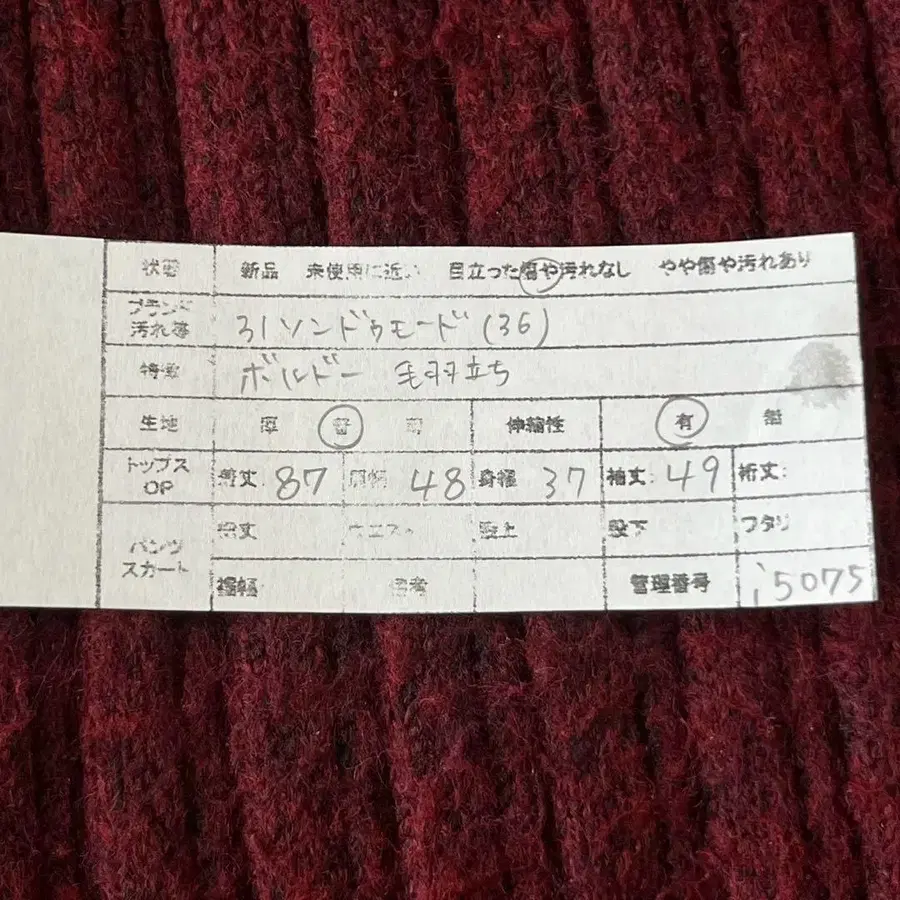 状態 新品 未使用に近い 目立った傷や汚れなし やや傷や汚れあり
ブランド
汚れ等 31ソンドゥモード(36)
特徴 ボルドー 毛羽立ち
生地 厚 普 伸縮性 有 無
トップス
OP 着丈: 87 肩幅 48 身幅 37 袖丈: 49 裄丈:
パンツ
スカート 総丈 ウエスト 股上 股下 ワタリ
裾幅 備考 管理番号 i5075